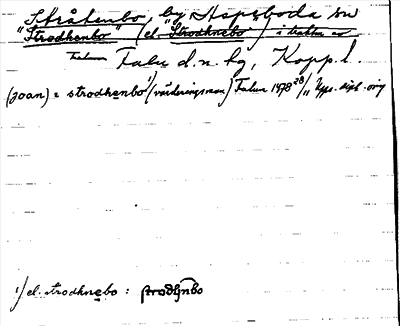 Stråtenbo, by Aspeboda sn
"Strodhenbo" (el. "Strodhnebo") i trakten av
Falu d.n. hg, Kopp. l.
(joan) i strodhenbo 1/ (värderingsman) Falun 1478 28/11 Upps. dipl. orig
1/ el. strodhnebo :